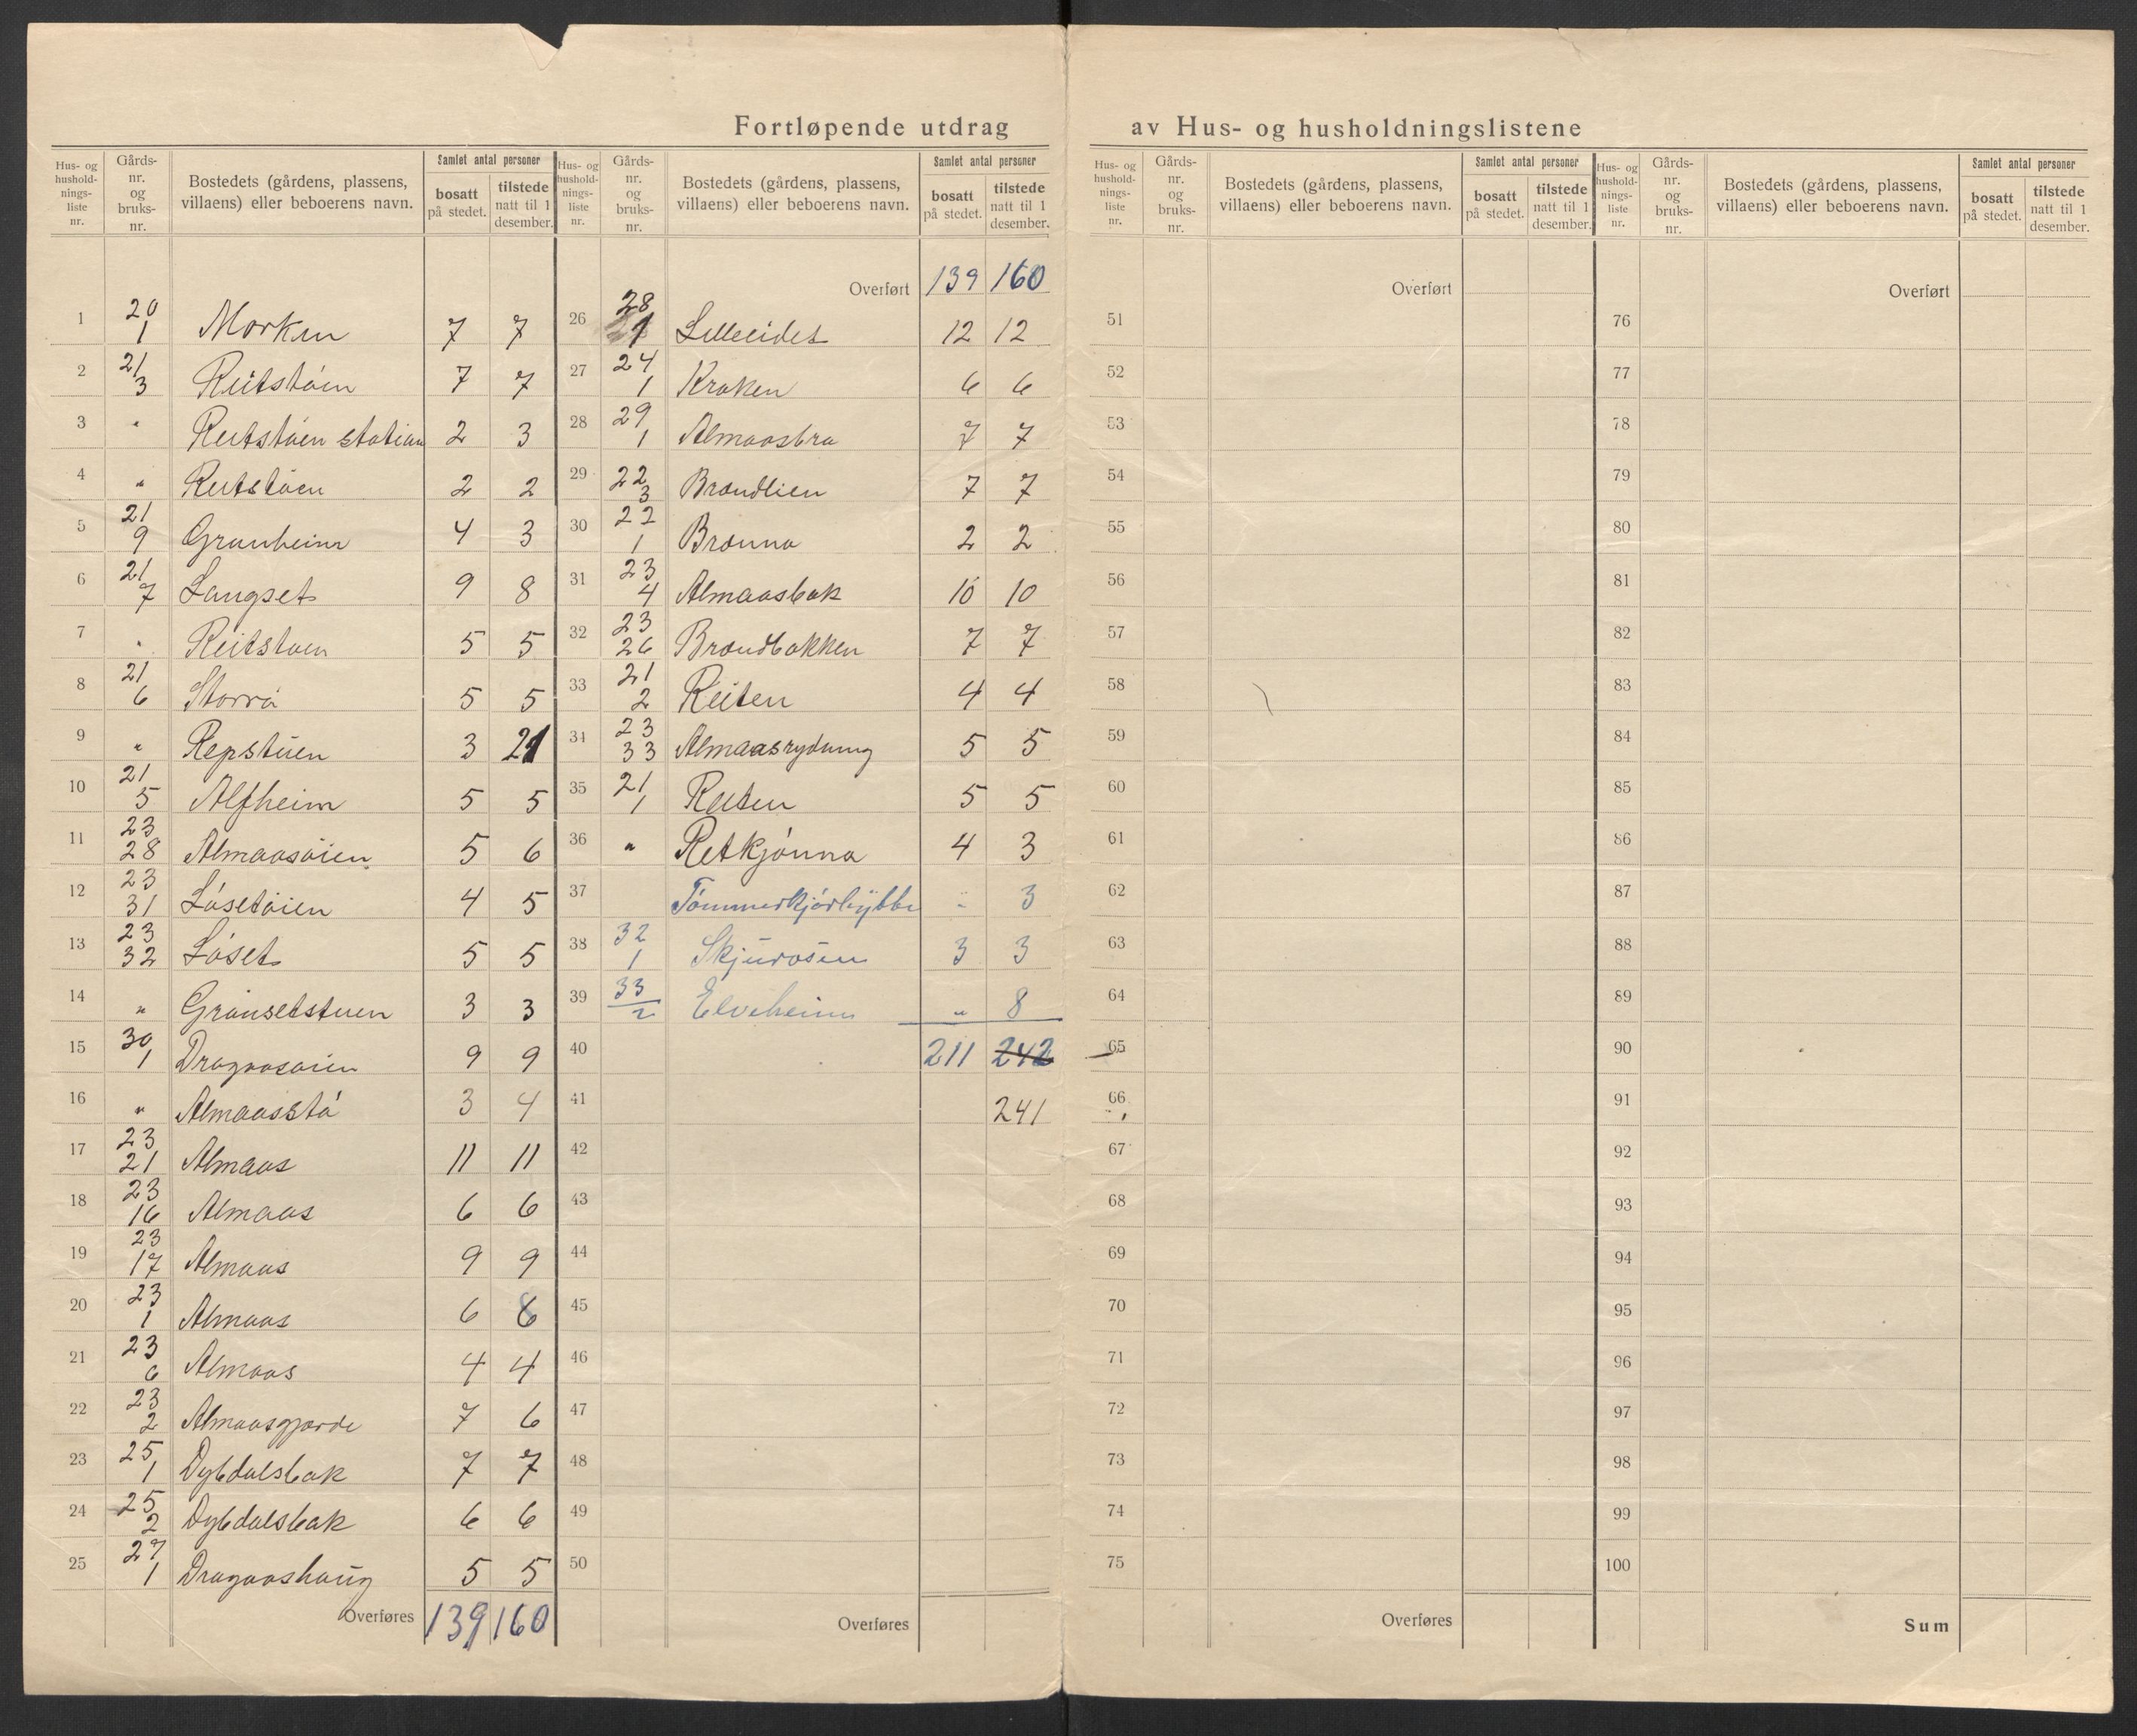 Fortløpende utdrag av Hus- og husholdningslistene
Hus- og hushold-nings-liste nr. Gårds-nr. og bruks-nr. Bostedets (gårdens, plassens, villaens) eller beboerens navn. Samlet antal personer bosatt på stedet. tilstede natt til 1 desember.
1 20/1 Morken 7 7
2 21/3 Reitstøen 7 7
3 " Reitstøen station 2 3
4 " Reitstøen 2 2
5 21/9 Granheim 4 3
6 21/7 Langset 9 8
7 " Reitstoen 5 5
8 21/6 Storrø 5 5
9 " Repstuen 3 21
10 21/5 Alfheim 5 5
11 23/28 Almaasøien 5 6
12 23/31 Løsetøien 4 5
13 23/32 Løset 5 5
14 " Grönsetstuen 3 3
15 30/1 Dragaasøien 9 9
16 " Almaasstø 3 4
17 23/21 Almaas 11 11
18 23/16 Almaas 6 6
19 23/17 Almaas 9 9
20 23/1 Almaas 6 8
21 23/6 Almaas 4 4
22 23/2 Almaasgjærde 7 6
23 25/1 Dybdalsbak 7 7
24 25/2 Dybdalsbak 6 6
25 27/1 Dragaashaug 5 5
Overføres 139 160
Hus- og hushold-nings-liste nr. Gårds-nr. og bruks-nr. Bostedets (gårdens, plassens, villaens) eller beboerens navn. Samlet antal personer bosatt på stedet. tilstede natt til 1 desember.
Overført 139 160
26 28/1 Lilleeidet 12 12
27 24/1 Kroken 6 6
28 29/1 Almaasbra 7 7
29 22/3 Brændlien 7 7
30 22/1 Brænna 2 2
31 23/4 Almaasbak 10 10
32 23/26 Brændbakken 7 7
33 21/2 Reiten 4 4
34 23/33 Almaasrydning 5 5
35 21/1 Reiten 5 5
36 " Retkjønna 4 3
37 Tømmerkjørhytte " 3
38 32/1 Skjurosen 3 3
39 33/2 Elveheim " 8
40 211 242
41 241
42
43
44
45
46
47
48
49
50
Overføres
Hus- og hushold-nings-liste nr. Gårds-nr. og bruks-nr. Bostedets (gårdens, plassens, villaens) eller beboerens navn. Samlet antal personer bosatt på stedet. tilstede natt til 1 desember.
Overført
51
52
53
54
55
56
57
58
59
60
61
62
63
64
65
66
67
68
69
70
71
72
73
74
75
Overføres
Hus- og hushold-nings-liste nr. Gårds-nr. og bruks-nr. Bostedets (gårdens, plassens, villaens) eller beboerens navn. Samlet antal personer bosatt på stedet. tilstede natt til 1 desember.
Overført
76
77
78
79
80
81
82
83
84
85
86
87
88
89
90
91
92
93
94
95
96
97
98
99
100
Sum